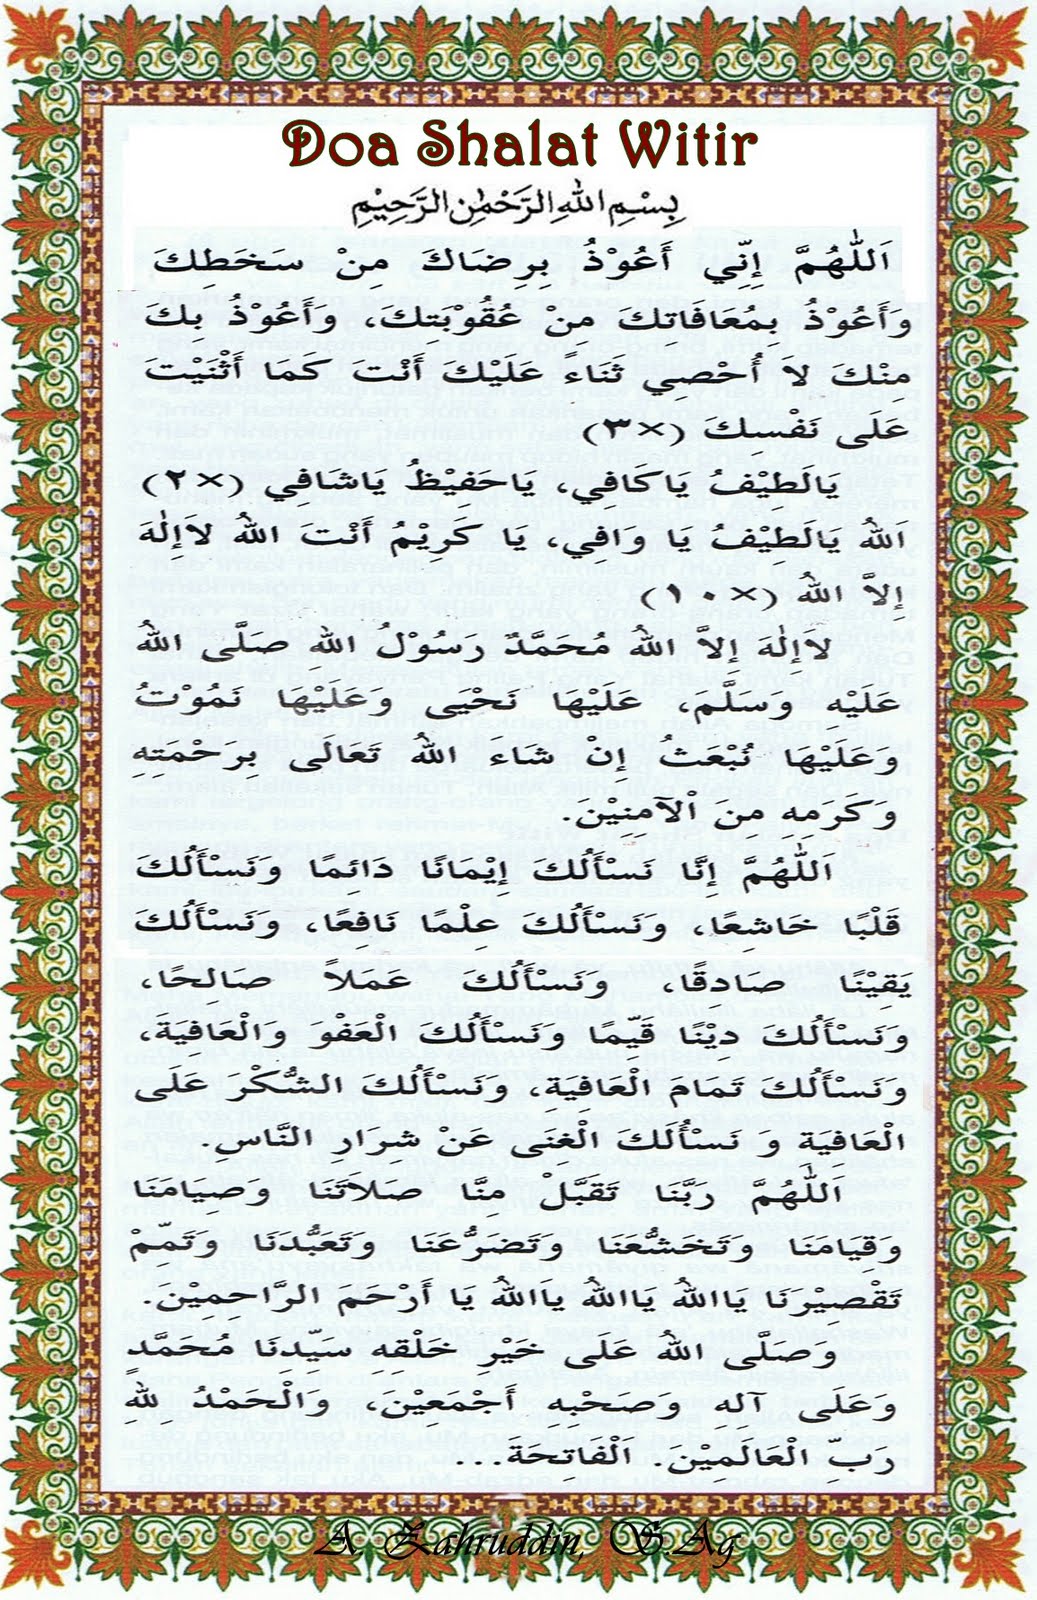 Doa Shalat Witir
بِسْمِ اللهِ الرَّحْمٰنِ الرَّحِيْمِ
اَللّٰهُمَّ إِنِّي أَعُوْذُ بِرِضَاكَ مِنْ سَخَطِكَ
وَأَعُوْذُ بِمُعَافَاتِكَ مِنْ عُقُوْبَتِكَ، وَأَعُوْذُ بِكَ
مِنْكَ لاَ أُحْصِي ثَنَاءً عَلَيْكَ أَنْتَ كَمَا أَثْنَيْتَ
عَلَى نَفْسِكَ (×٣)
يَالَطِيْفُ يَاكَافِي، يَاحَفِيْظُ يَاشَافِي (×٢)
اَللهُ يَالَطِيْفُ يَا وَافِي، يَا كَرِيْمُ أَنْتَ اللهُ لاَإِلٰهَ
إِلاَّ اللهُ (×١٠)
لاَإِلٰهَ إِلاَّ اللهُ مُحَمَّدٌ رَسُوْلُ اللهِ صَلَّى اللهُ
عَلَيْهِ وَسَلَّمَ، عَلَيْهَا نَحْيٰى وَعَلَيْهَا نَمُوْتُ
وَعَلَيْهَا نُبْعَثُ إِنْ شَاءَ اللهُ تَعَالَى بِرَحْمَتِهِ
وَكَرَمِهِ مِنَ الْآمِنِيْنَ.
اَللّٰهُمَّ إِنَّا نَسْأَلُكَ إِيْمَانًا دَائِمًا وَنَسْأَلُكَ
قَلْبًا خَاشِعًا، وَنَسْأَلُكَ عِلْمًا نَافِعًا، وَنَسْأَلُكَ
يَقِيْنًا صَادِقًا، وَنَسْأَلُكَ عَمَلاً صَالِحًا،
وَنَسْأَلُكَ دِيْنًا قَيِّمًا وَنَسْأَلُكَ الْعَفْوَ وَالْعَافِيَةَ،
وَنَسْأَلُكَ تَمَامَ الْعَافِيَةِ، وَنَسْأَلُكَ الشُّكْرَ عَلَى
الْعَافِيَةِ وَ نَسْأَلُكَ الْغِنَى عَنْ شِرَارِ النَّاسِ.
اَللّٰهُمَّ رَبَّنَا تَقَبَّلْ مِنَّا صَلاَتَنَا وَصِيَامَنَا
وَقِيَامَنَا وَتَخَشُّعَنَا وَتَضَرُّعَنَا وَتَعَبُّدَنَا وَتَمِّمْ
تَقْصِيْرَنَا يَااَللهُ يَااَللهُ يَااَللهُ يَا أَرْحَمَ الرَّاحِمِيْنَ.
وَصَلَّى اللهُ عَلَى خَيْرِ خَلْقِهِ سَيِّدِنَا مُحَمَّدٍ
وَعَلَى آلِهِ وَصَحْبِهِ أَجْمَعِيْنَ، وَالْحَمْدُ لِلّٰهِ
رَبِّ الْعَالَمِيْنَ، اَلْفَاتِحَةَ...
A. Zahruddin, S.Ag